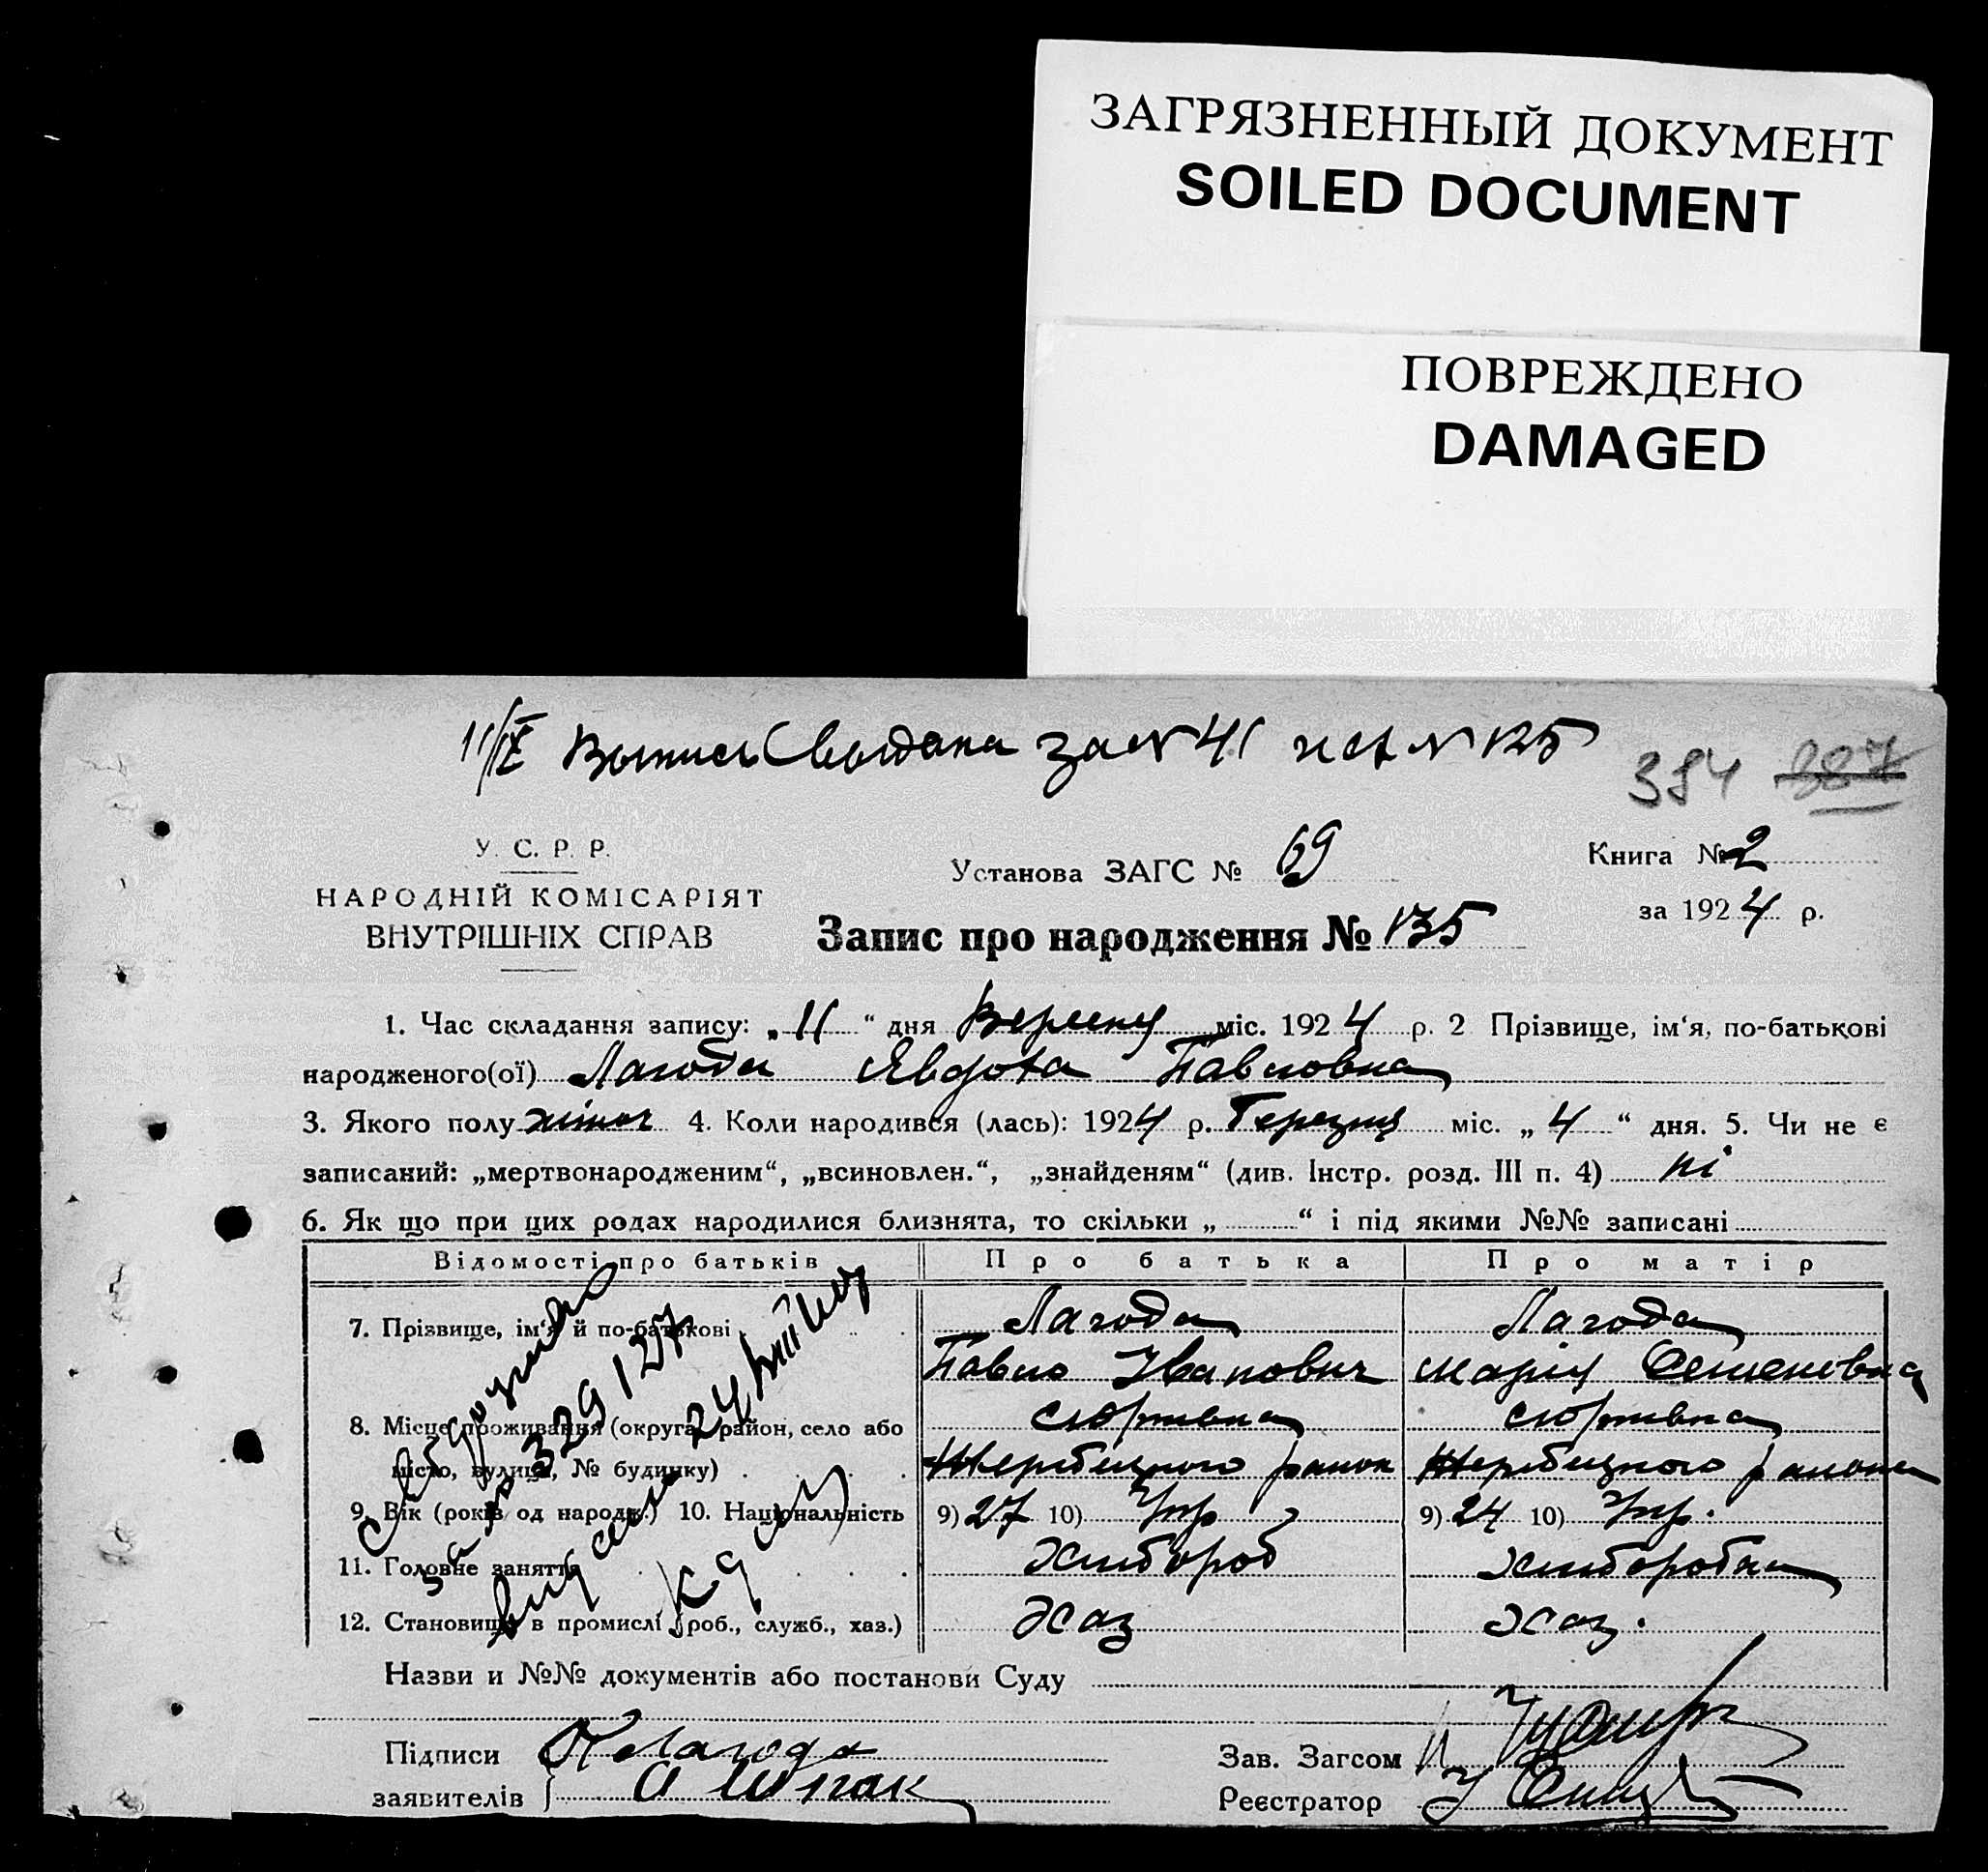 ЗАГРЯЗНЕННЫЙ ДОКУМЕНТ
SOILED DOCUMENT
ПОВРЕЖДЕНО
DAMAGED
11/IX Выпись за № 41
384 387
У. С. Р. Р.
НАРОДНІЙ КОМІСАРІЯТ
ВНУТРІШНІХ СПРАВ
Установа ЗАГС № 69
Книга № 2
за 1924 р.
Запис про народження № 135
1. Час складання запису: „ 11 “ дня Вересня міс. 1924 р. 2 Прізвище, ім'я, по-батькові
народженого(ої) Лагода Явдоха Павловна
3. Якого полу жіноч 4. Коли народився (лась): 1924 р. Березня міс. „ 4 “ дня. 5. Чи не є
записаний: „мертвонародженим“, „всиновлен.“, „знайденям“ (див. Інстр. розд. III п. 4) ні
6. Як що при цих родах народилися близнята, то скільки „ “ і під якими №№ записані
Відомості про батьків Про батька Про матір
7. Прізвище, ім'я й по-батькові Лагода Лагода
Павло Іванович Марія Семеновна
8. Місце проживання (округа, район, село або
місто, вулиця, № будинку)
9. Вік (років од народж.) 10. Національність 9) 27 10) Укр 9) 24 10) Укр.
11. Головне заняття Хлібороб Хліборобка
12. Становище в промислі (роб., служб., хаз.) Хаз Хаз.
Назви и №№ документів або постанови Суду
Підписи Лагода
заявителів А Шпак
Зав. Загсом
Реєстратор